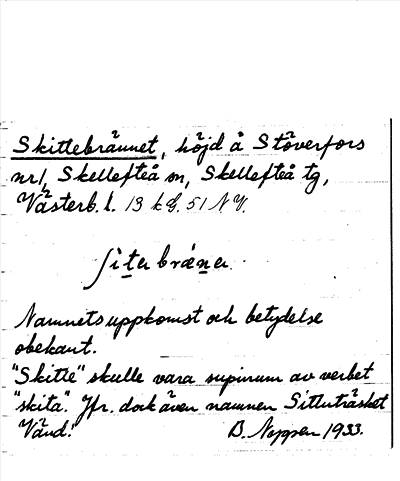 Skittebrännet, höjd å Stöverfors
nr1, Skellefteå sn, Skellefteå tg,
Västerb. l. 13 k G. 51 N V.
ʃi'ter bræner.
Namnets uppkomst och betydelse
obekant.
"Skitte" skulle vara supinum av verbet
"skita". Jfr. dock även namnen Sittuträsket
Vänd!
B. 1933.